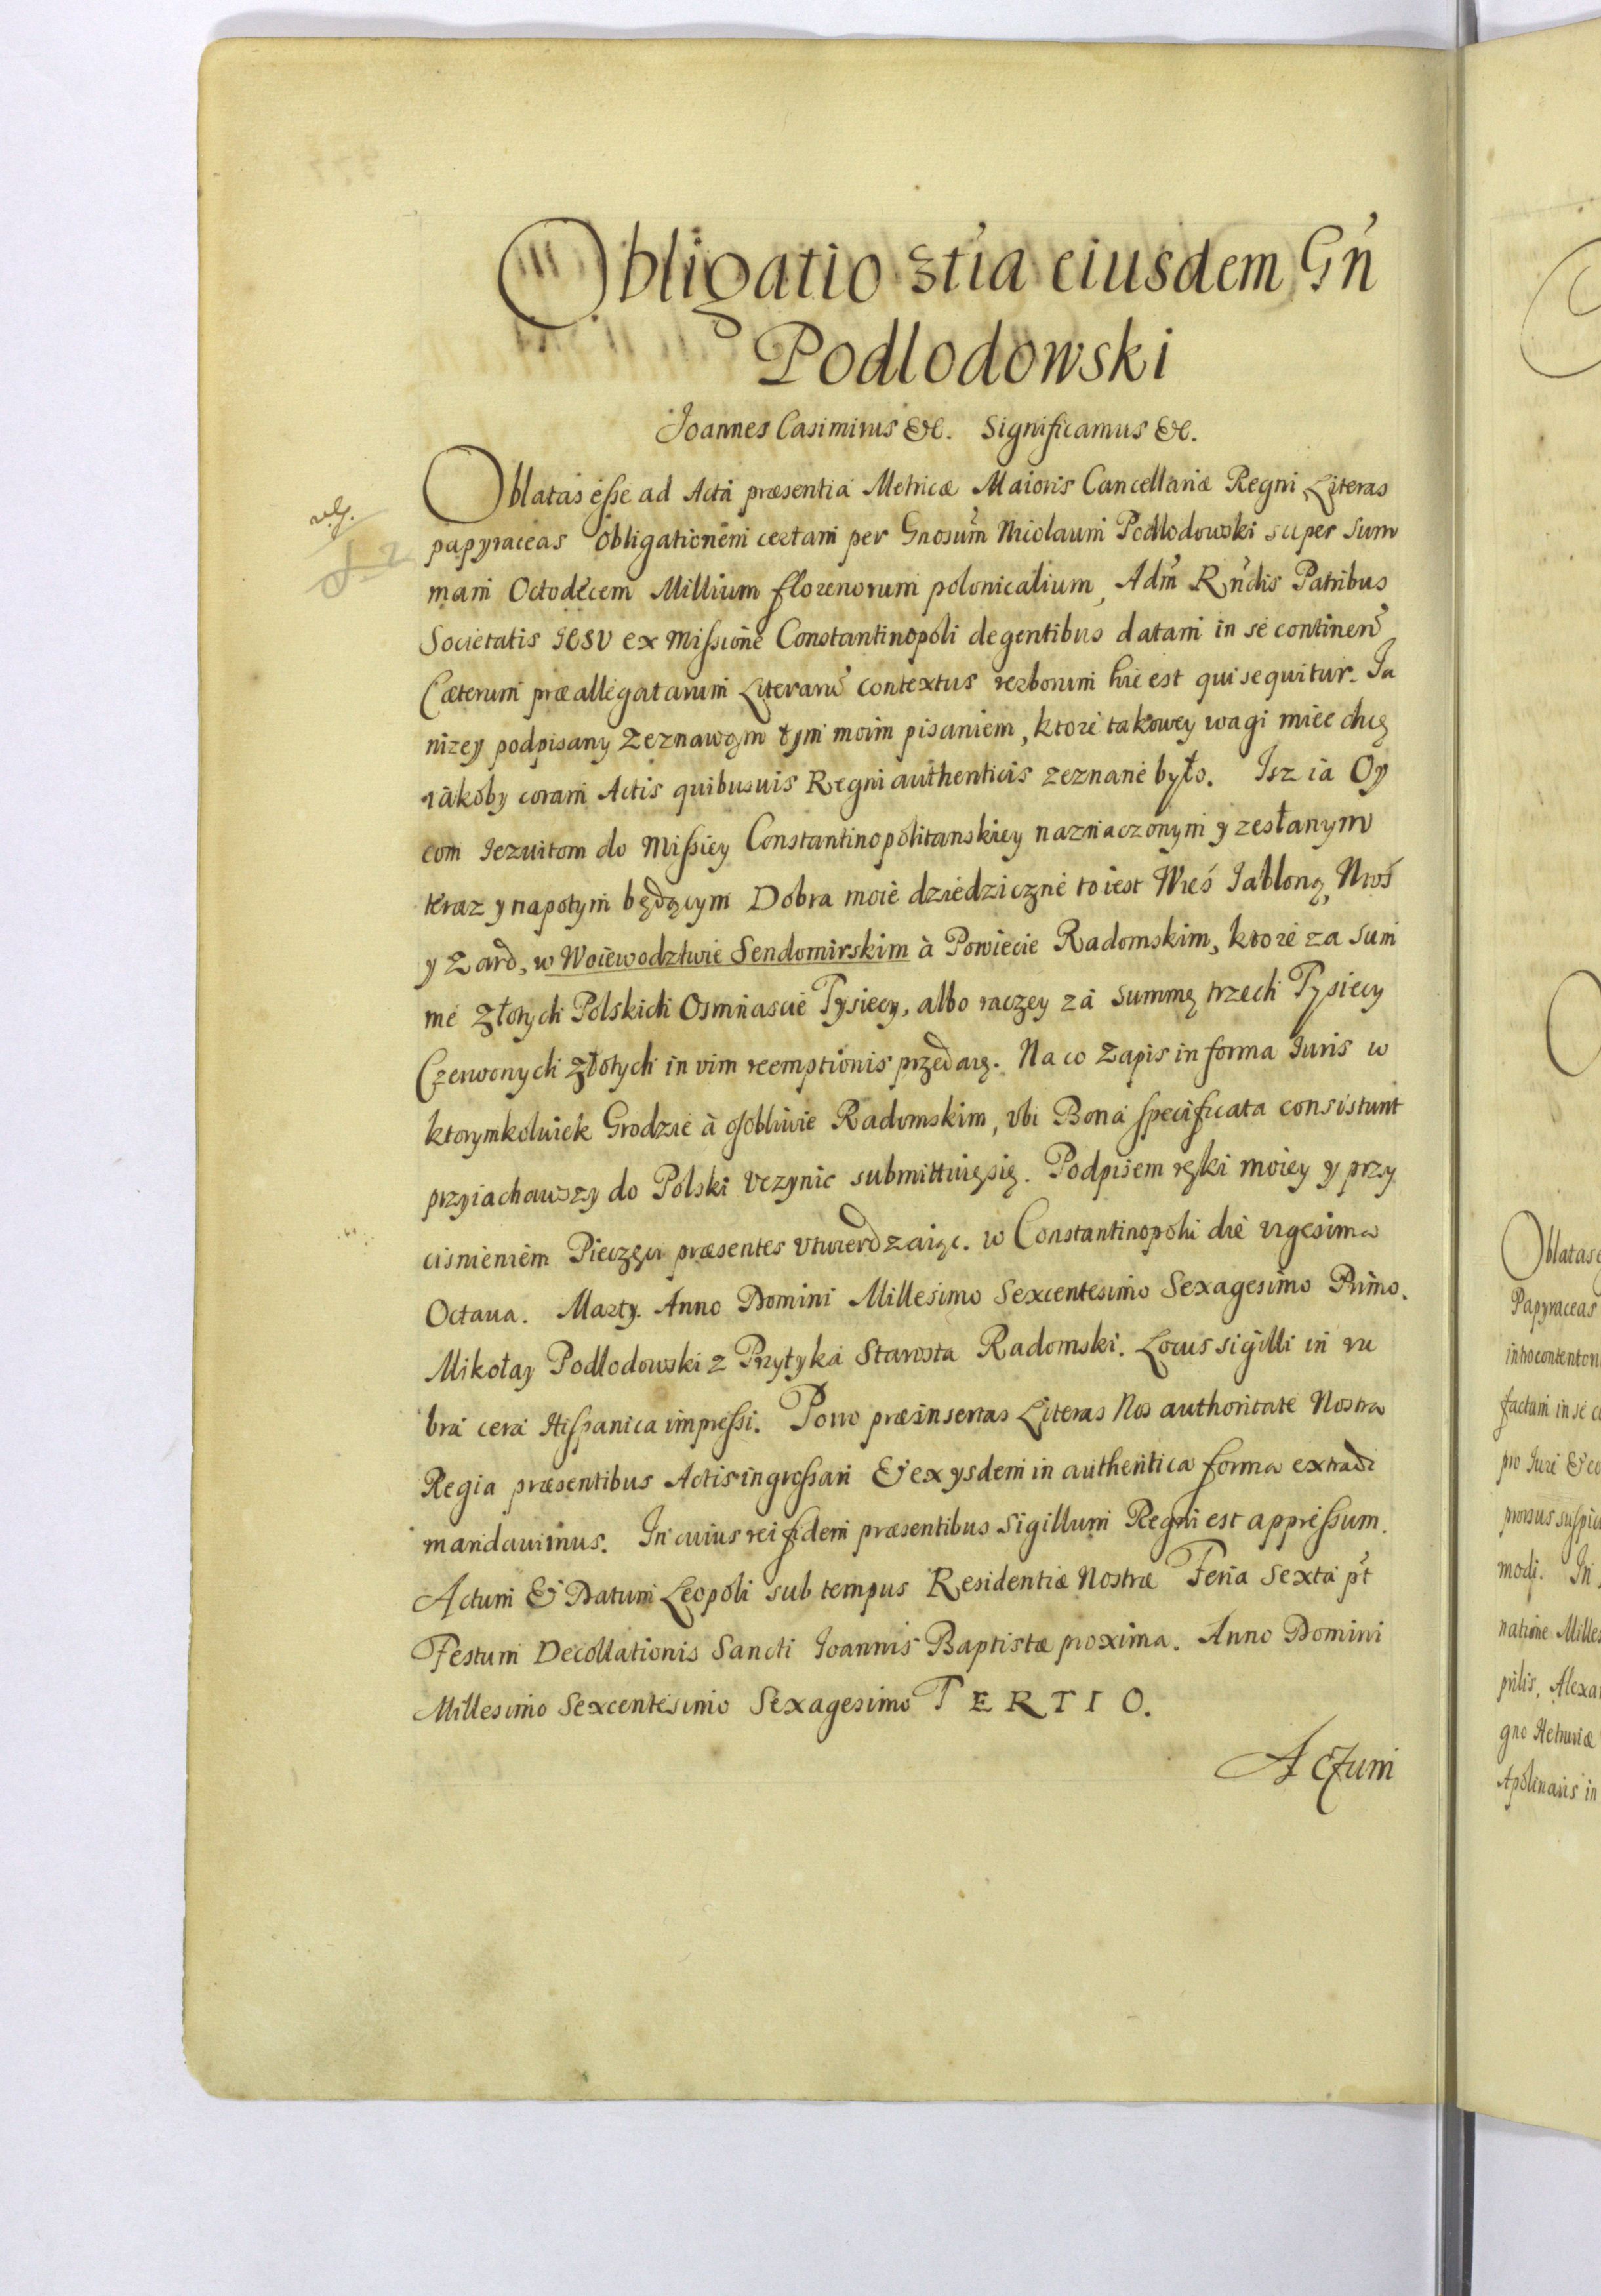 Obligatio 3tia eiusdem Gn̄
Podlodowski
Joannes Casimirus &c. Significamus &c.
Oblatas esse ad Acta præsentia Metricæ Maioris Cancellariæ Regni Literas
papyraceas obligationem certam per Gnosum̄ Nicolaum Podlodowski super Sum
mam Octodecem Millium florenorum polonicalium, Adm̄ Rn̄dis Patribus
Societatis IESU ex Missione Constantinopoli degentibus datam in se continen̄
Cæterum præallegatarum Literarū contextus verborum hic est qui sequitur. Ja
nizey podpisany zeznawąm tym moim pisaniem, ktore takowey wagi miec chcę
iakoby coram Actis quibusuis Regni authenticis zeznane było. Isz ia Oy
com Iezuitom do Missiey Constantinopolitanskiey naznaczonym y zesłanym
teraz y napotym będącym Dobra moie dziedziczne to iest Wieś Jabloną,
y Zard, w Woiewodztwie Sendomirskim à Powiecie Radomskim, ktore za Sum
me złotych Polskich Osmnascie Tysiecy, albo raczey za Summę trzech Tysiecy
Czerwonych złotych in vim reemptionis przedaię. Na co Zapis in forma Iuris w
ktorymkolwiek Grodzie à osobliwie Radomskim, vbi Bona specificata consistunt
przyiachawszy do Polski vczynic submittuięsię. Podpisem ręki moiey y przy
cisnieniem Pieczęci præsentes vtwierdzaiąc. w Constantinopoli die vigesima
Octaua. Marty. Anno Domini Millesimo Sexcentesimo Sexagesimo Primo.
Mikołay Podlodowski z Przytyka Starosta Radomski. Locus sigilli in ru
bra cera Hispanica impressi. Porro præinsertas Literas Nos authoritate Nostra
Regia præsentibus Actis ingrossari & ex ysdem in authentica forma extradi
mandauimus. In cuius rei fidem præsentibus Sigillum Regni est appressum.
Actum & Datum Leopoli sub tempus Residentiæ Nostræ Feria Sexta pt̄
Festum Decollationis Sancti Joannis Baptistæ proxima. Anno Domini
Millesimo Sexcentesimo Sexagesimo TERTIO.
Actum
Oblatas
Papyraceas
in hoc contentor
factam in se c
pro Iure & co
prorsus suspic
modi. In
natione Milles
prilis, Alexa
gno Hetruriæ
Apolinaris in